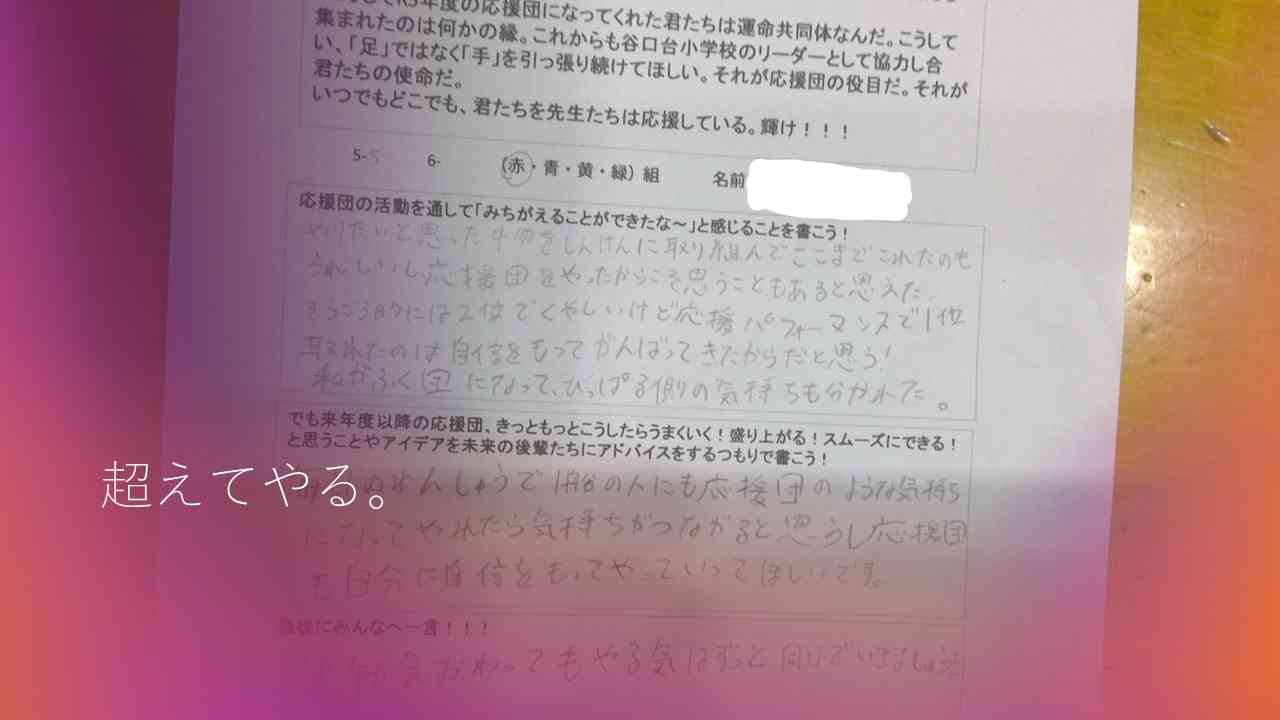 R5年度の応援団になってくれた君たちは運命共同体なんだ。こうして
集まれたのは何かの縁。これからも谷口台小学校のリーダーとして協力し合
い、「足」ではなく「手」を引っ張り続けてほしい。それが応援団の役目だ。それが
君たちの使命だ。
いつでもどこでも、君たちを先生たちは応援している。輝け！！！
5-5 6- （赤・青・黄・緑）組 名前
応援団の活動を通して「みちがえることができたな～」と感じることを書こう！
やりたいと思った物をしんけんに取り組んでここまでこれたのも
うれしいし応援団をやったからこそ思うこともあると思えた。
そうごう的には2位でくやしいけど応援パフォーマンスで1位
取れたのは自信をもってがんばってきたからだと思う!
私がふく団になって、ひっぱる側の気持ちも分かれた。
でも来年度以降の応援団、きっともっとこうしたらうまくいく！盛り上がる！スムーズにできる！
と思うことやアイデアを未来の後輩たちにアドバイスをするつもりで書こう！
のれんしゅうで の人にも応援団のような気持ち
になってやれたら気持ちがつながると思うし応援団
も自分に自信をもってやっていってほしいです。
最後にみんなへ一言！！！
かわってもやる気はずっと同じでいきましょう
超えてやる。